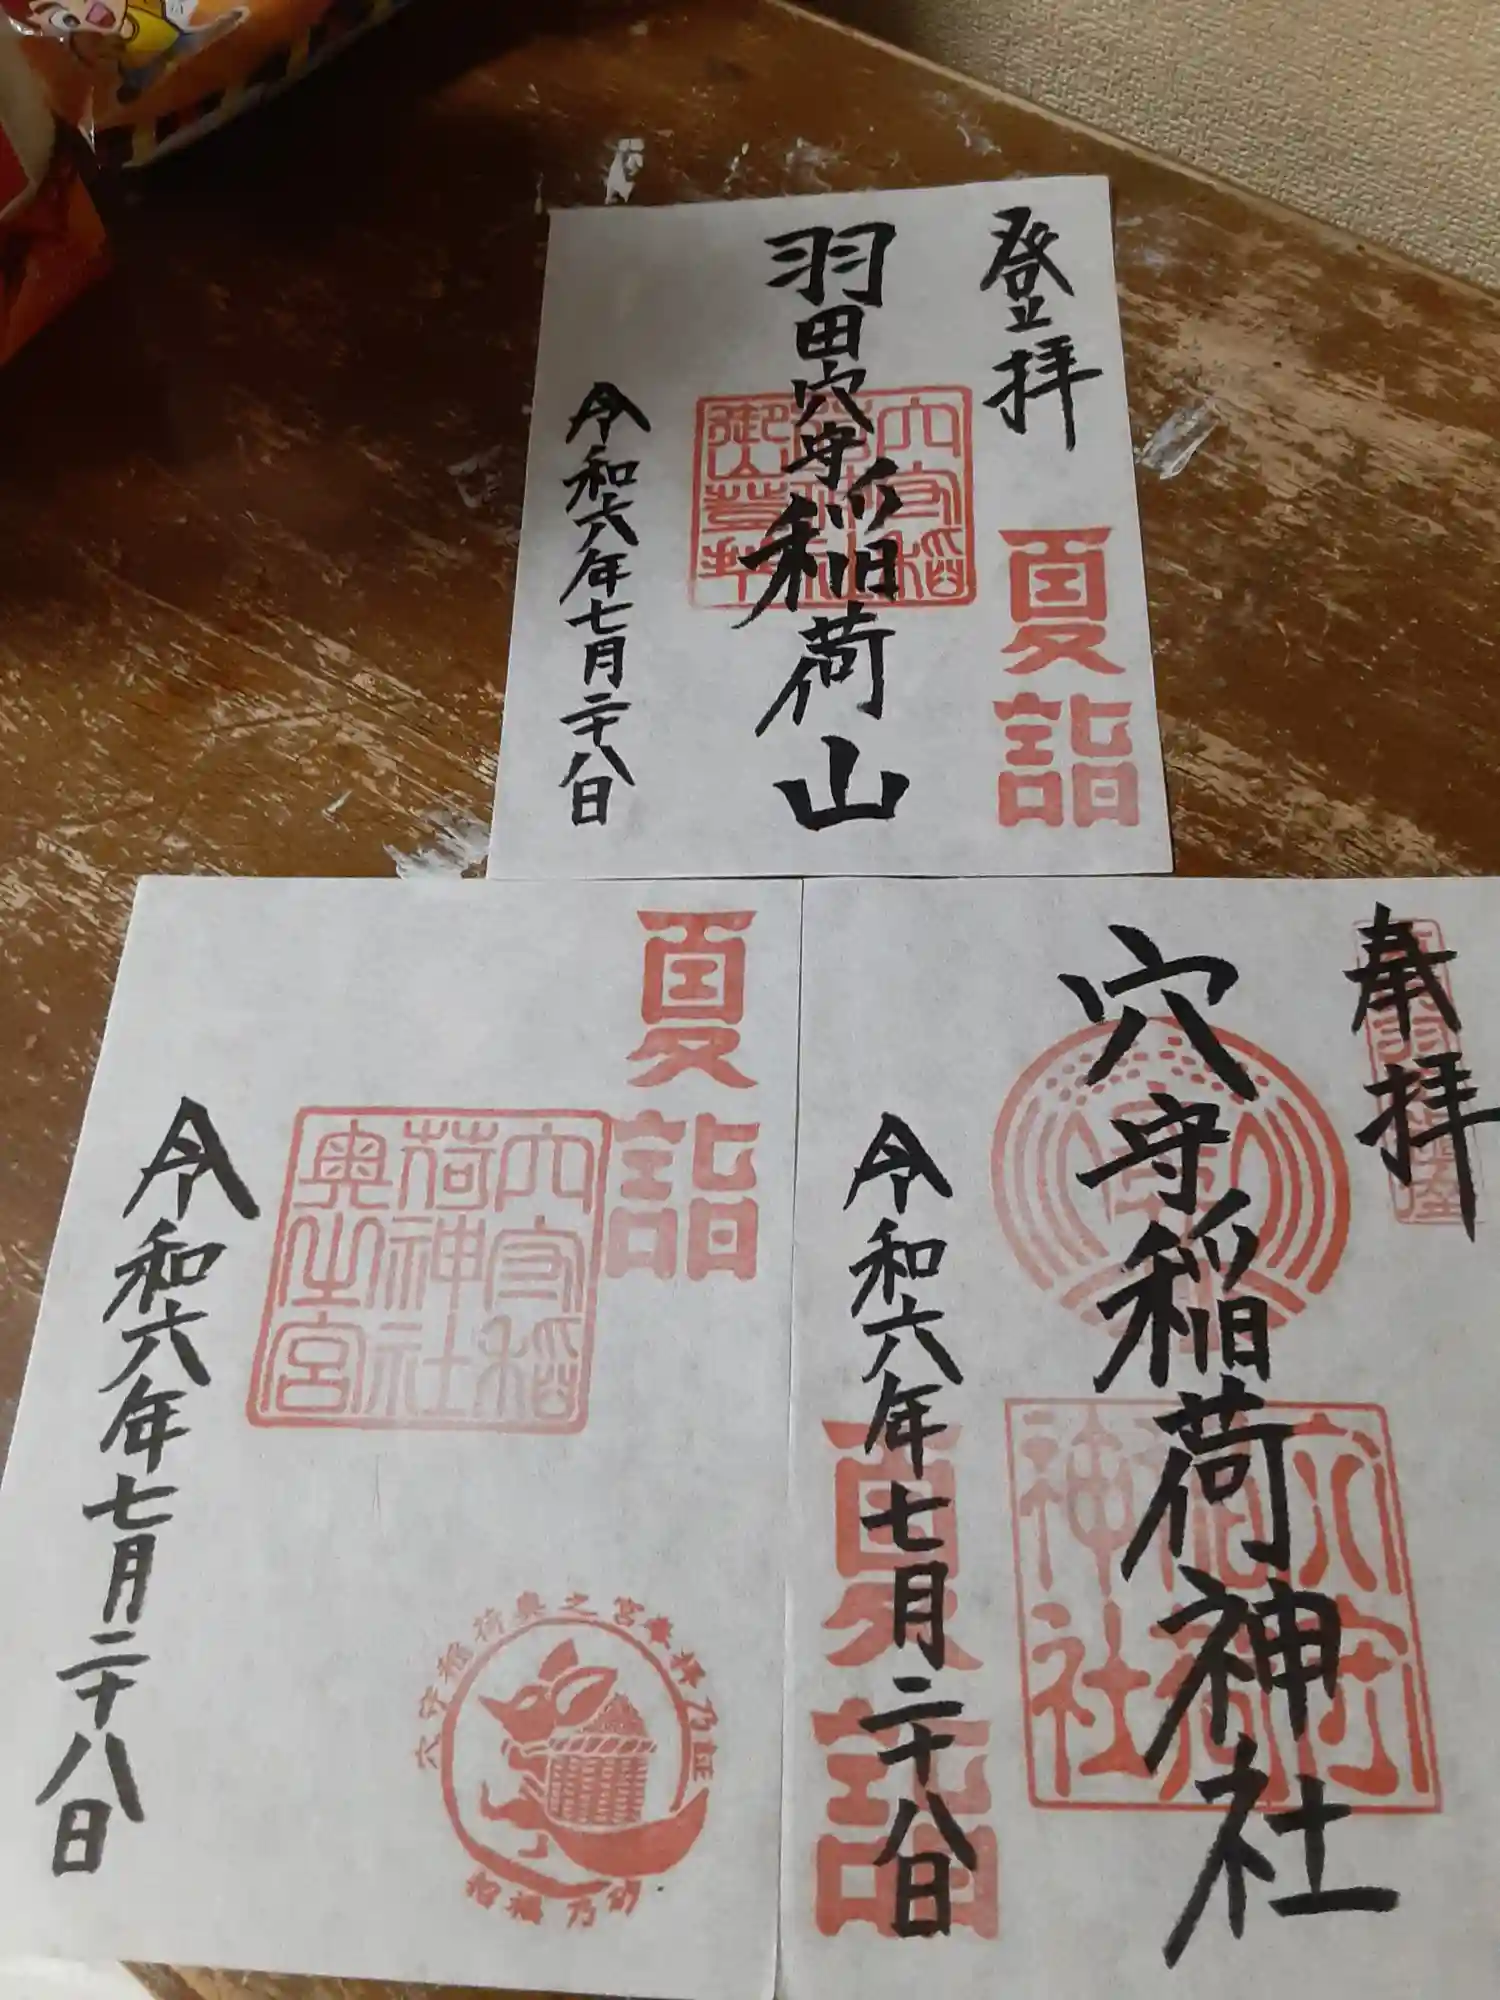 登拝
夏詣
羽田穴守稲荷山
穴守稲
荷神社
御山登拝
令和六年七月二十八日
夏詣
穴守稲
荷神社
奥之宮
令和六年七月二十八日
穴守稲荷奥之宮奉拝乃証
招福乃砂
奉拝
穴守稲荷神社
穴守
稲荷
神社
令和六年七月二十八日
夏詣